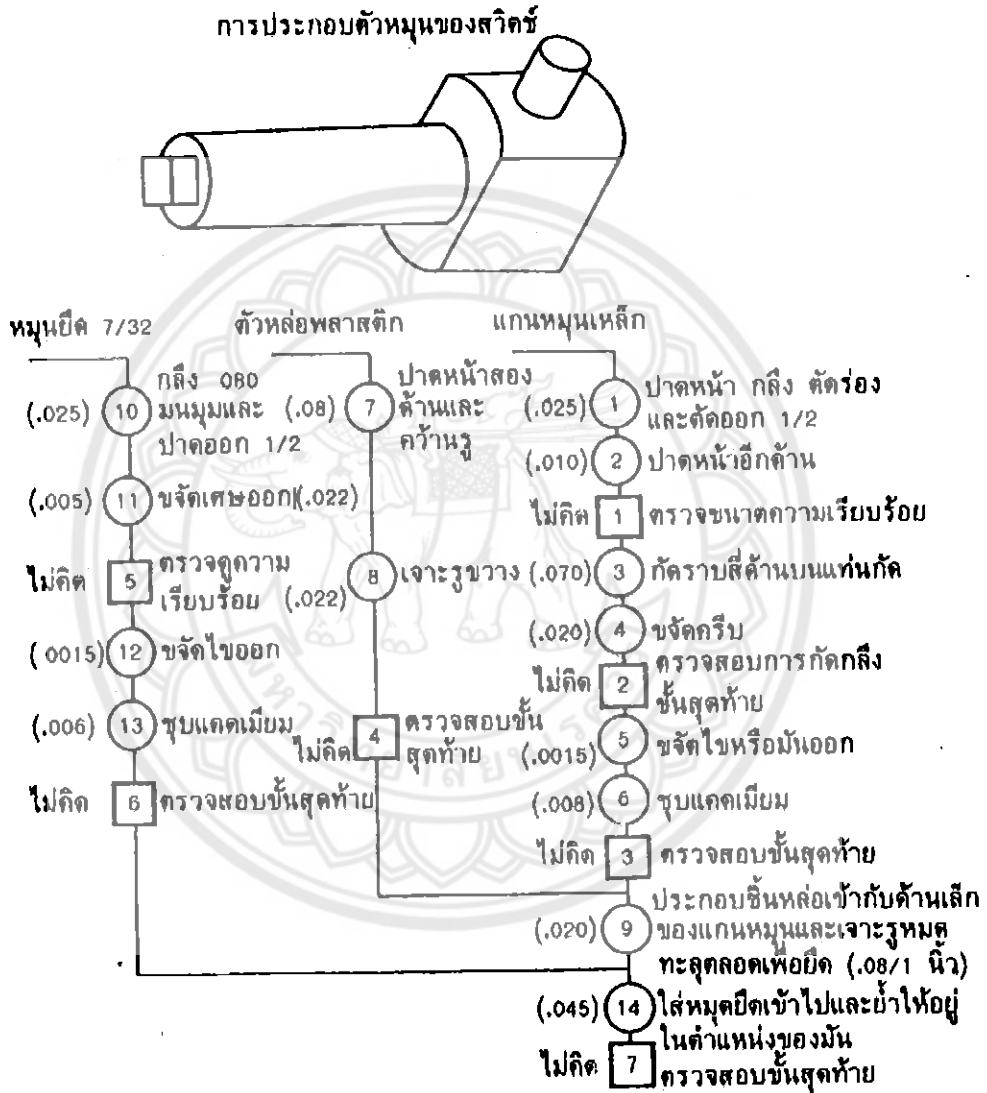 การประกอบตัวหมุนของสวิตช์
หมุนยึด 7/32
(.025) 10 กลึง 080
มนมุมและ
ปาดออก 1/2
(.005) 11 ขจัดเศษออก
ไม่คิด 5 ตรวจดูความ
เรียบร้อย
(0015) 12 ขจัดไขออก
(.006) 13 ชุบแคดเมียม
ไม่คิด 6 ตรวจสอบขั้นสุดท้าย
ตัวหล่อพลาสติก
(.08) 7 ปาดหน้าสอง
ด้านและ
คว้านรู
(.022)
(.022) 8 เจาะรูขวาง
ไม่คิด 4 ตรวจสอบขั้น
สุดท้าย
แกนหมุนเหล็ก
(.025) 1 ปาดหน้า กลึง ตัดร่อง
และตัดออก 1/2
(.010) 2 ปาดหน้าอีกด้าน
ไม่คิด 1 ตรวจขนาดความเรียบร้อย
(.070) 3 กัดราบสี่ด้านบนแท่นกัด
(.020) 4 ขจัดครีบ
ไม่คิด 2 ตรวจสอบการกัดกลึง
ขั้นสุดท้าย
(.0015) 5 ขจัดไขหรือมันออก
(.008) 6 ชุบแคดเมียม
ไม่คิด 3 ตรวจสอบขั้นสุดท้าย
ประกอบชิ้นหล่อเข้ากับด้านเล็ก
(.020) 9 ของแกนหมุนและเจาะรูหมด
ทะลุตลอดเพื่อยึด (.08/1 นิ้ว)
(.045) 14 ใส่หมุดยึดเข้าไปและย้ำให้อยู่
ในตำแหน่งของมัน
ไม่คิด 7 ตรวจสอบขั้นสุดท้าย